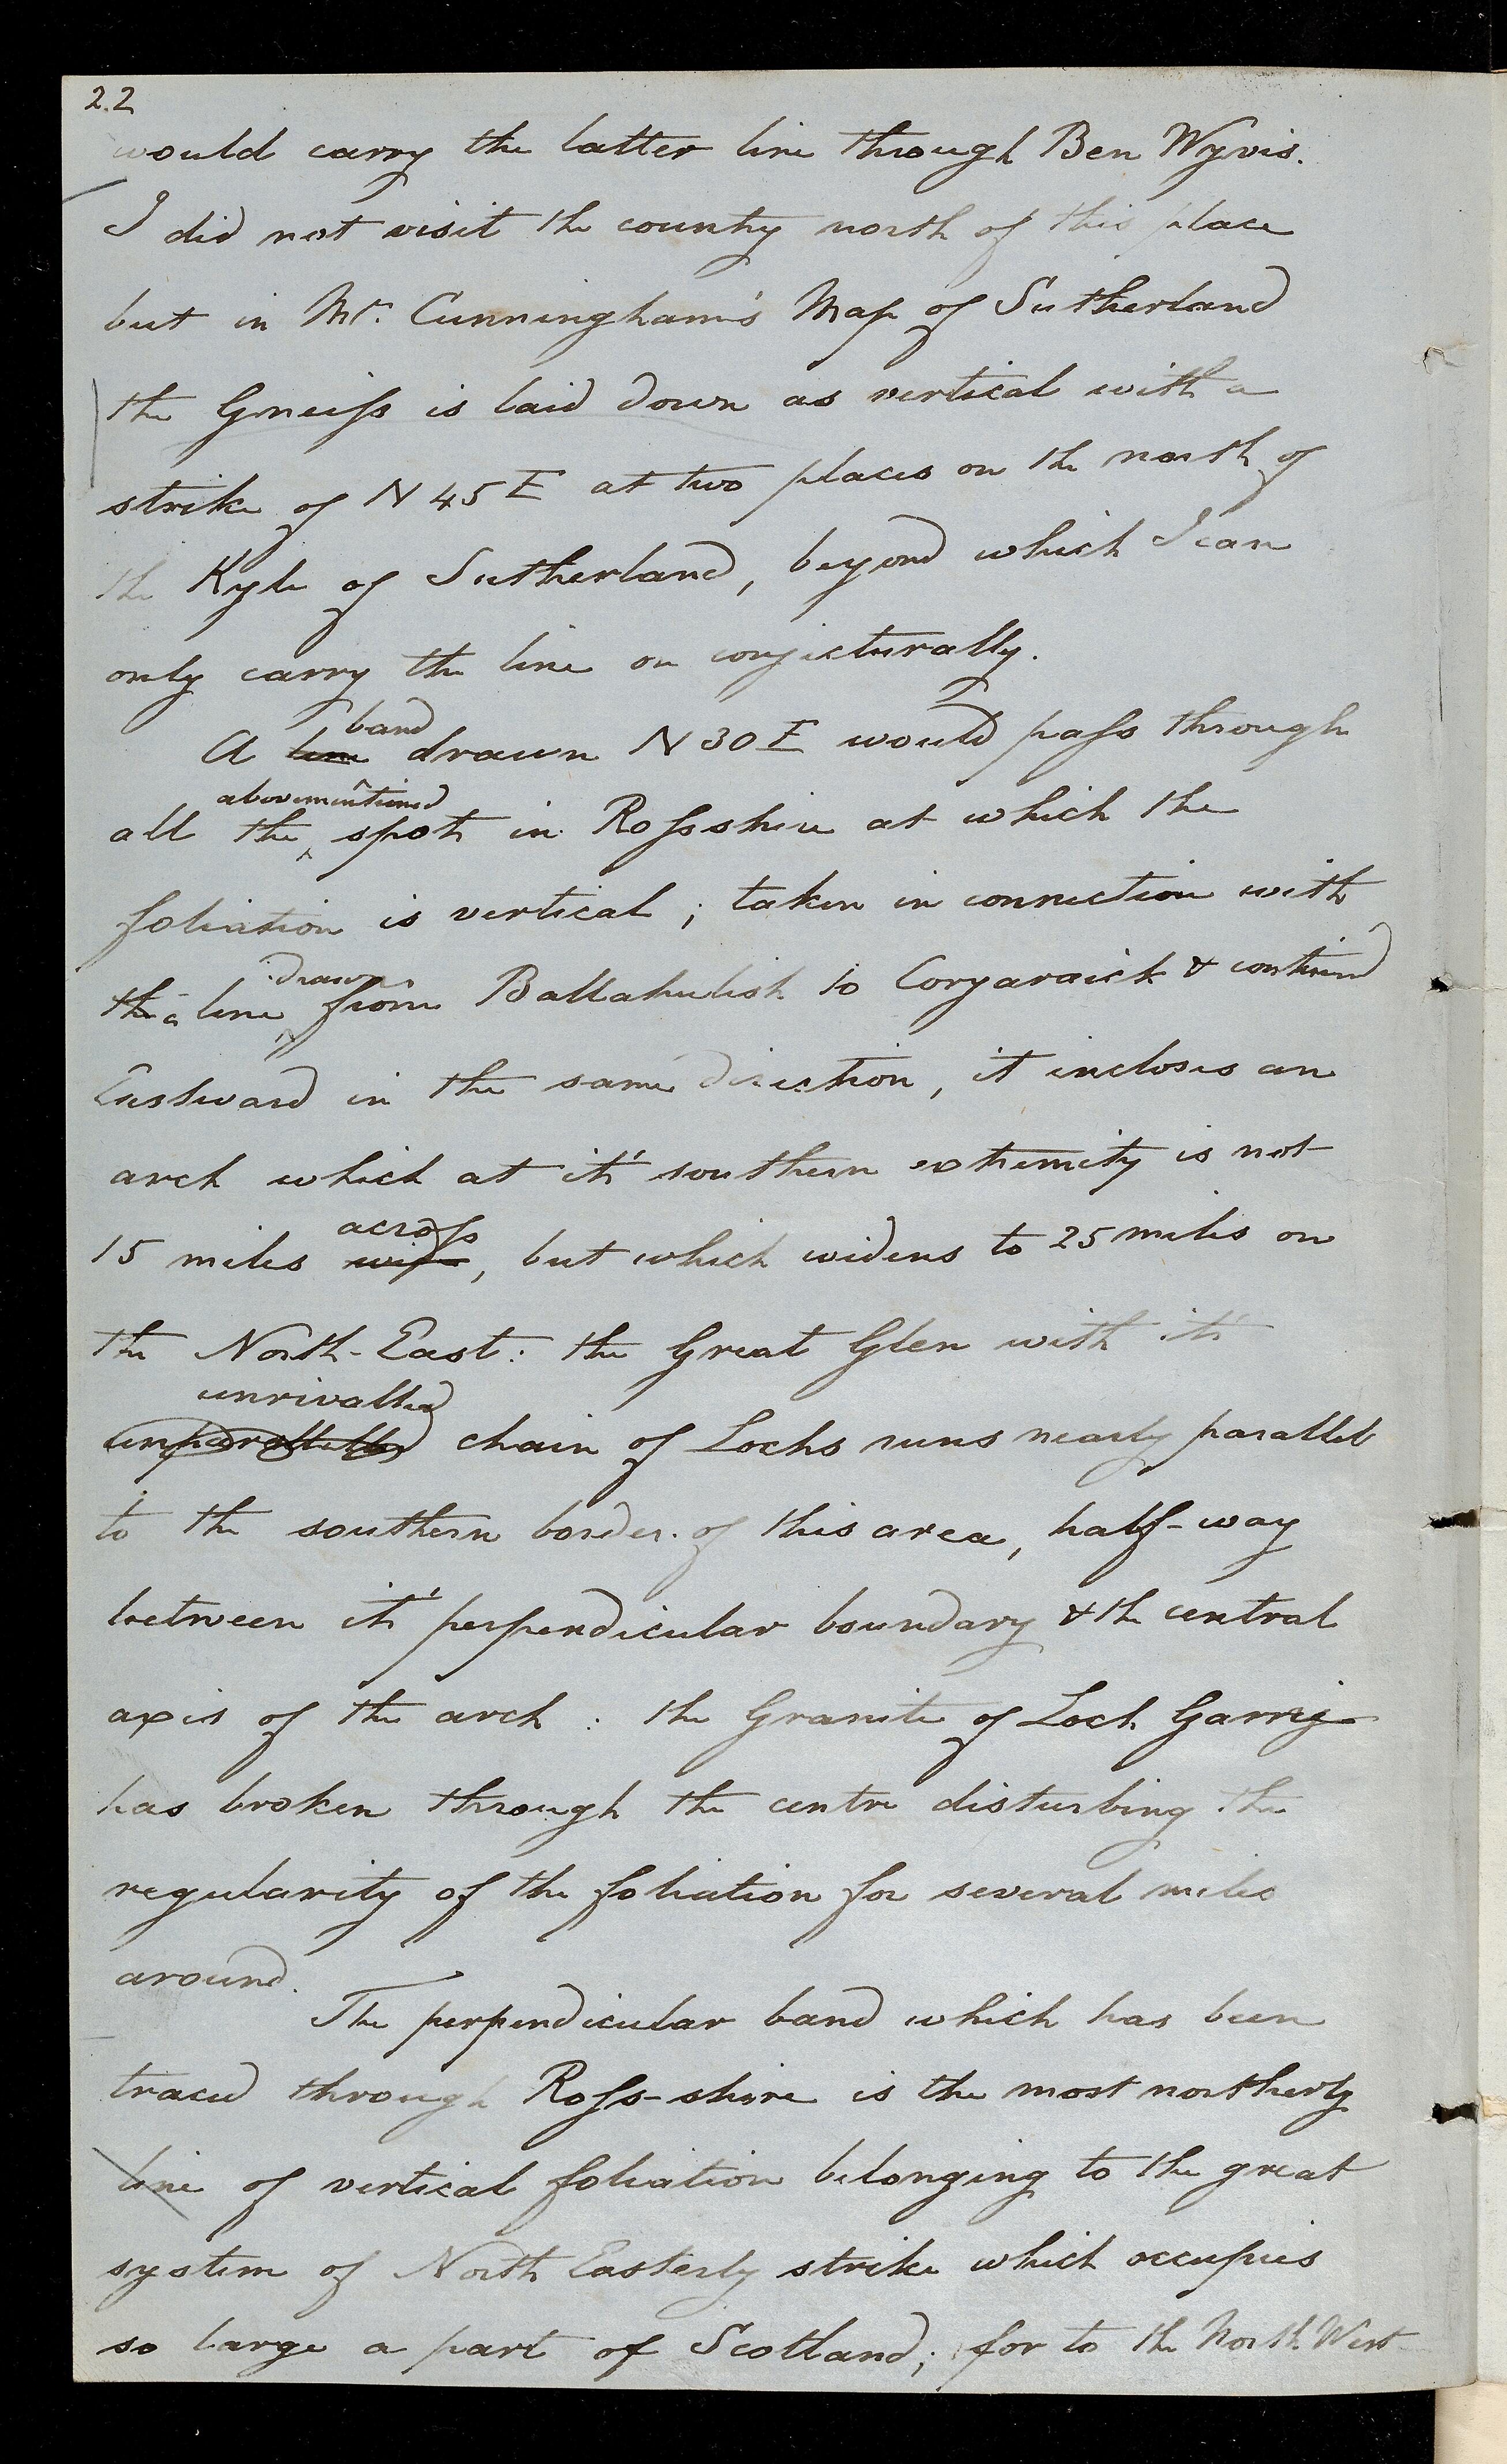 22
would carry the latter line through Ben Wyvis.
I did not visit the country north of this place
but in Mr. Cunningham's Map of Sutherland
the Gneiss is laid down as vertical with a
strike of N 45 E at two places on the north of
the Kyle of Sutherland, beyond which I can
only carry the line on conjecturally.
band
A line drawn N 30 E would pass through
abovementioned
all the spots in Rossshire at which the
foliation is vertical; taken in connection with
drawn
the a line from Ballahulish to Coryaraick & continued
Eastward in the same direction, it incloses an
arch which at it's southern extremity is not
across
15 miles wide, but which widens to 25 miles on
the North-East: the Great Glen with it's
unrivalled
unparallelled chain of Lochs runs nearly parallel
to the southern border of this area, half-way
between it's perpendicular boundary & the central
axis of the arch: the Granite of Loch Garrig
has broken through the centre disturbing the
regularity of the foliation for several miles
around.
The perpendicular band which has been
traced through Ross-shire is the most northerly
line of vertical foliation belonging to the great
system of North Easterly strike which occupies
so large a part of Scotland; for to the North West